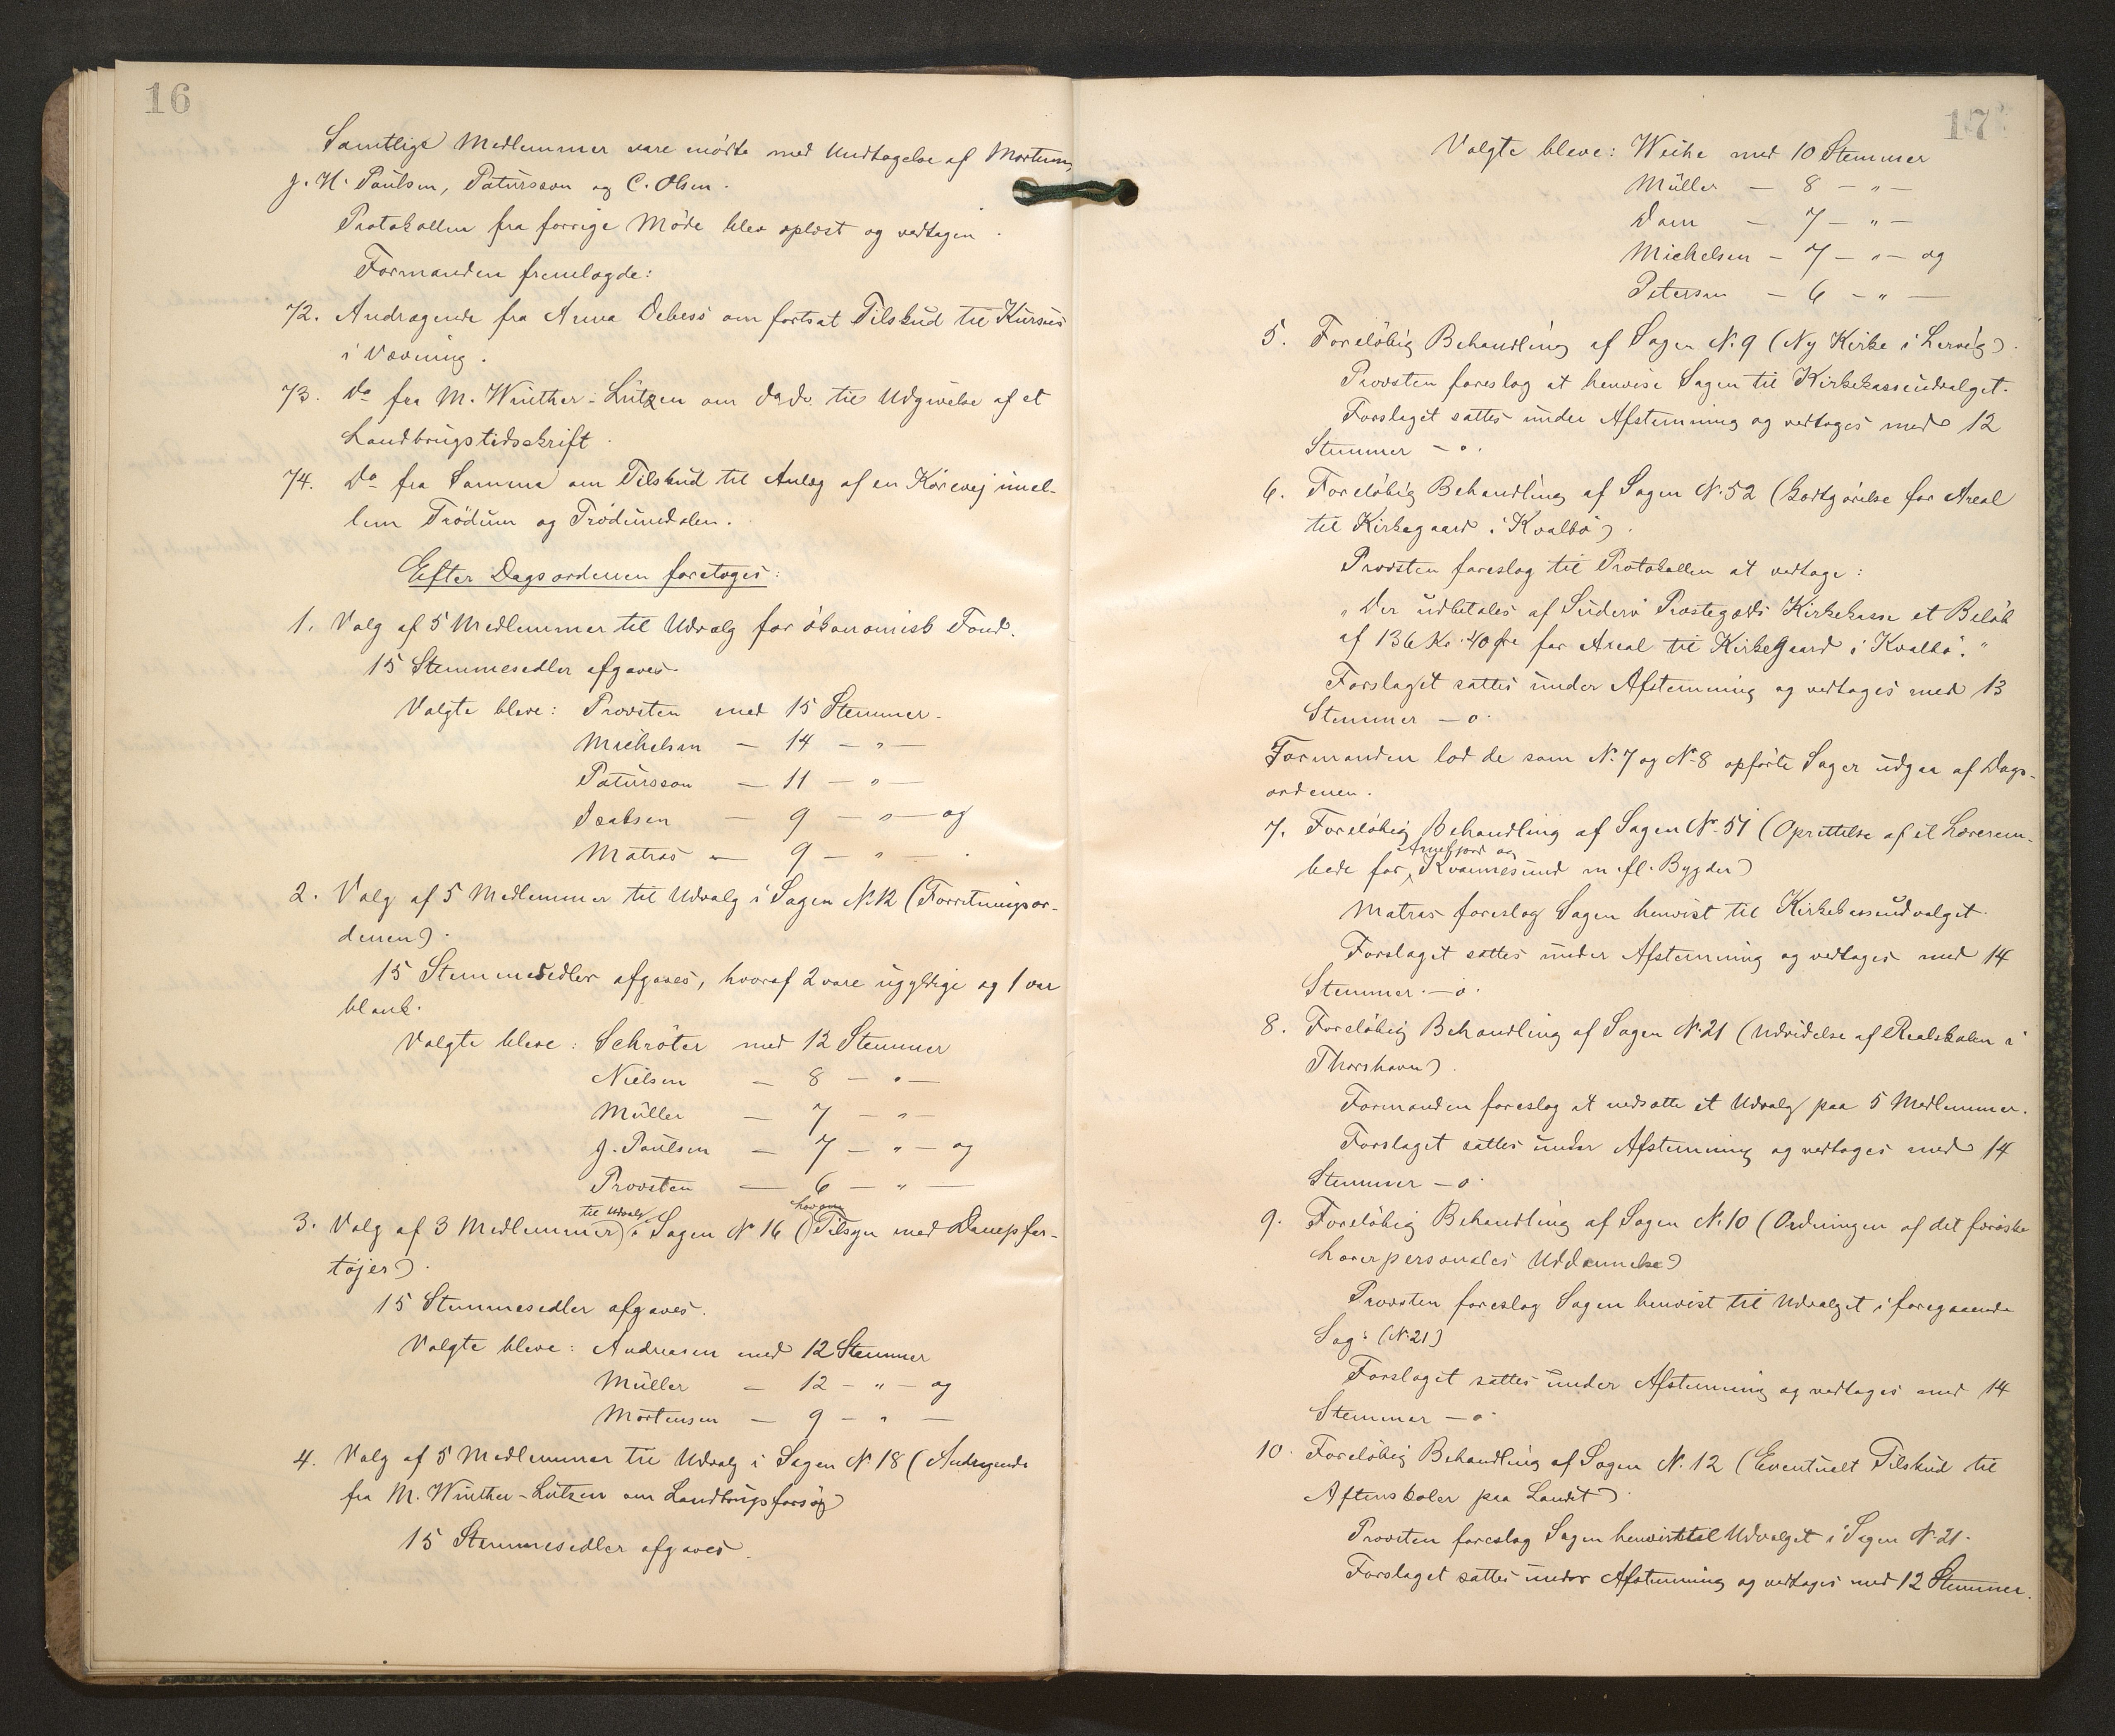 16
Samtlige Medlemmer vare mödte med Undtagelse af Mortensen,
J. H. Paulsen, Patursson og C. Olsen.
Protokollen fra forrige Møde blev oplæst og vedtagen.
Formanden fremlagde:
72. Andragende fra Anna Debess om fortsat Tilskud til Kursus
i Vævning.
73. Do fra M. Winther-Lützen om do do. til Udgivelse af et
Landbrugstidsskrift.
74. Do fra Samme om Tilskud til Anlæg af en Körevej imel-
lem Trödum og Trödumdalen.
Efter Dagsordenen foretoges:
1. Valg af 5 Medlemmer til Udvalg for ökonomisk Fond.
15 Stemmesedler afgaves.
Valgte bleve: Provsten med 15 Stemmer.
Michelsen — 14 — " —
Patursson — 11 — " —
Isaksen — 9 — " — og
Matras — 9 — " — .
2. Valg af 5 Medlemmer til Udvalg i Sagen N. 12 (Forretningsor-
denen).
15 Stemmesedler afgaves, hvoraf 2 vare ugyldige og 1 var
blank.
Valgte bleve: Schröter med 12 Stemmer
Nielsen — 8 — " —
Müller — 7 — " —
J. Paulsen — 7 — " — og
Provsten — 6 — " —
til Udvalg Lov om
3. Valg af 3 Medlemmer i Sagen No 16 (Tilsyn med Dampfar-
töjer).
15 Stemmesedler afgaves.
Valgte bleve: Andreasen med 12 Stemmer
Müller — 12 — " — og
Mortensen — 9 — " —
4. Valg af 5 Medlemmer til Udvalg i Sagen N. 18 (Andragende
fra M. Winther-Lützen om Landbrugsforsög)
15 Stemmesedler afgaves.
17
Valgte bleve: Weihe med 10 Stemmer
Müller — 8 — " —
Dam — 7 — " —
Michelsen — 7 — " — og
Petersen — 6 — " —
5. Forelöbig Behandling af Sagen N. 9 (Ny Kirke i Lervig).
Provsten foreslog at henvise Sagen til Kirkekasseudvalget.
Forslaget sattes under Afstemning og vedtoges med 12
Stemmer — 0.
6. Forelöbig Behandling af Sagen N. 52 (Godtgörelse for Areal
til Kirkegaard i Kvalbö).
Provsten foreslog til Protokollen at vedtage:
"Der udbetales af Suderö Præstegælds Kirkekasse et Belöb
af 136 Kr. 40 Øre for Areal til Kirkegaard i Kvalbö."
Forslaget sattes under Afstemning og vedtoges med 13
Stemmer — 0.
Formanden lod de som N. 7 og N. 8 opförte Sager udgaa af Dags-
ordenen.
7. Forelöbig Behandling af Sagen No. 51 (Oprettelse af et Lærerem-
Arnefjord og
bede for Kvannesund m. fl. Bygder)
Matras foreslog Sagen henvist til Kirkekasseudvalget.
Forslaget sattes under Afstemning og vedtoges med 14
Stemmer — 0.
8. Forelöbig Behandling af Sagen N. 21 (Udvidelse af Realskolen i
Thorshavn).
Formanden foreslog at nedsætte et Udvalg paa 5 Medlemmer.
Forslaget sattes under Afstemning og vedtoges med 14
Stemmer — 0.
9. Forelöbig Behandling af Sagen N. 10 (Ordningen af det færöske
Lærerpersonales Uddannelse)
Provsten foreslog Sagen henvist til Udvalget i foregaaende
Sag. (N. 21)
Forslaget sattes under Afstemning og vedtoges med 14
Stemmer — 0.
10. Forelöbig Behandling af Sagen N. 12 (Eventuelt Tilskud til
Aftenskoler paa Landet).
Provsten foreslog Sagen henvist til Udvalget i Sagen N. 21.
Forslaget sattes under Afstemning og vedtoges med 12 Stemmer.